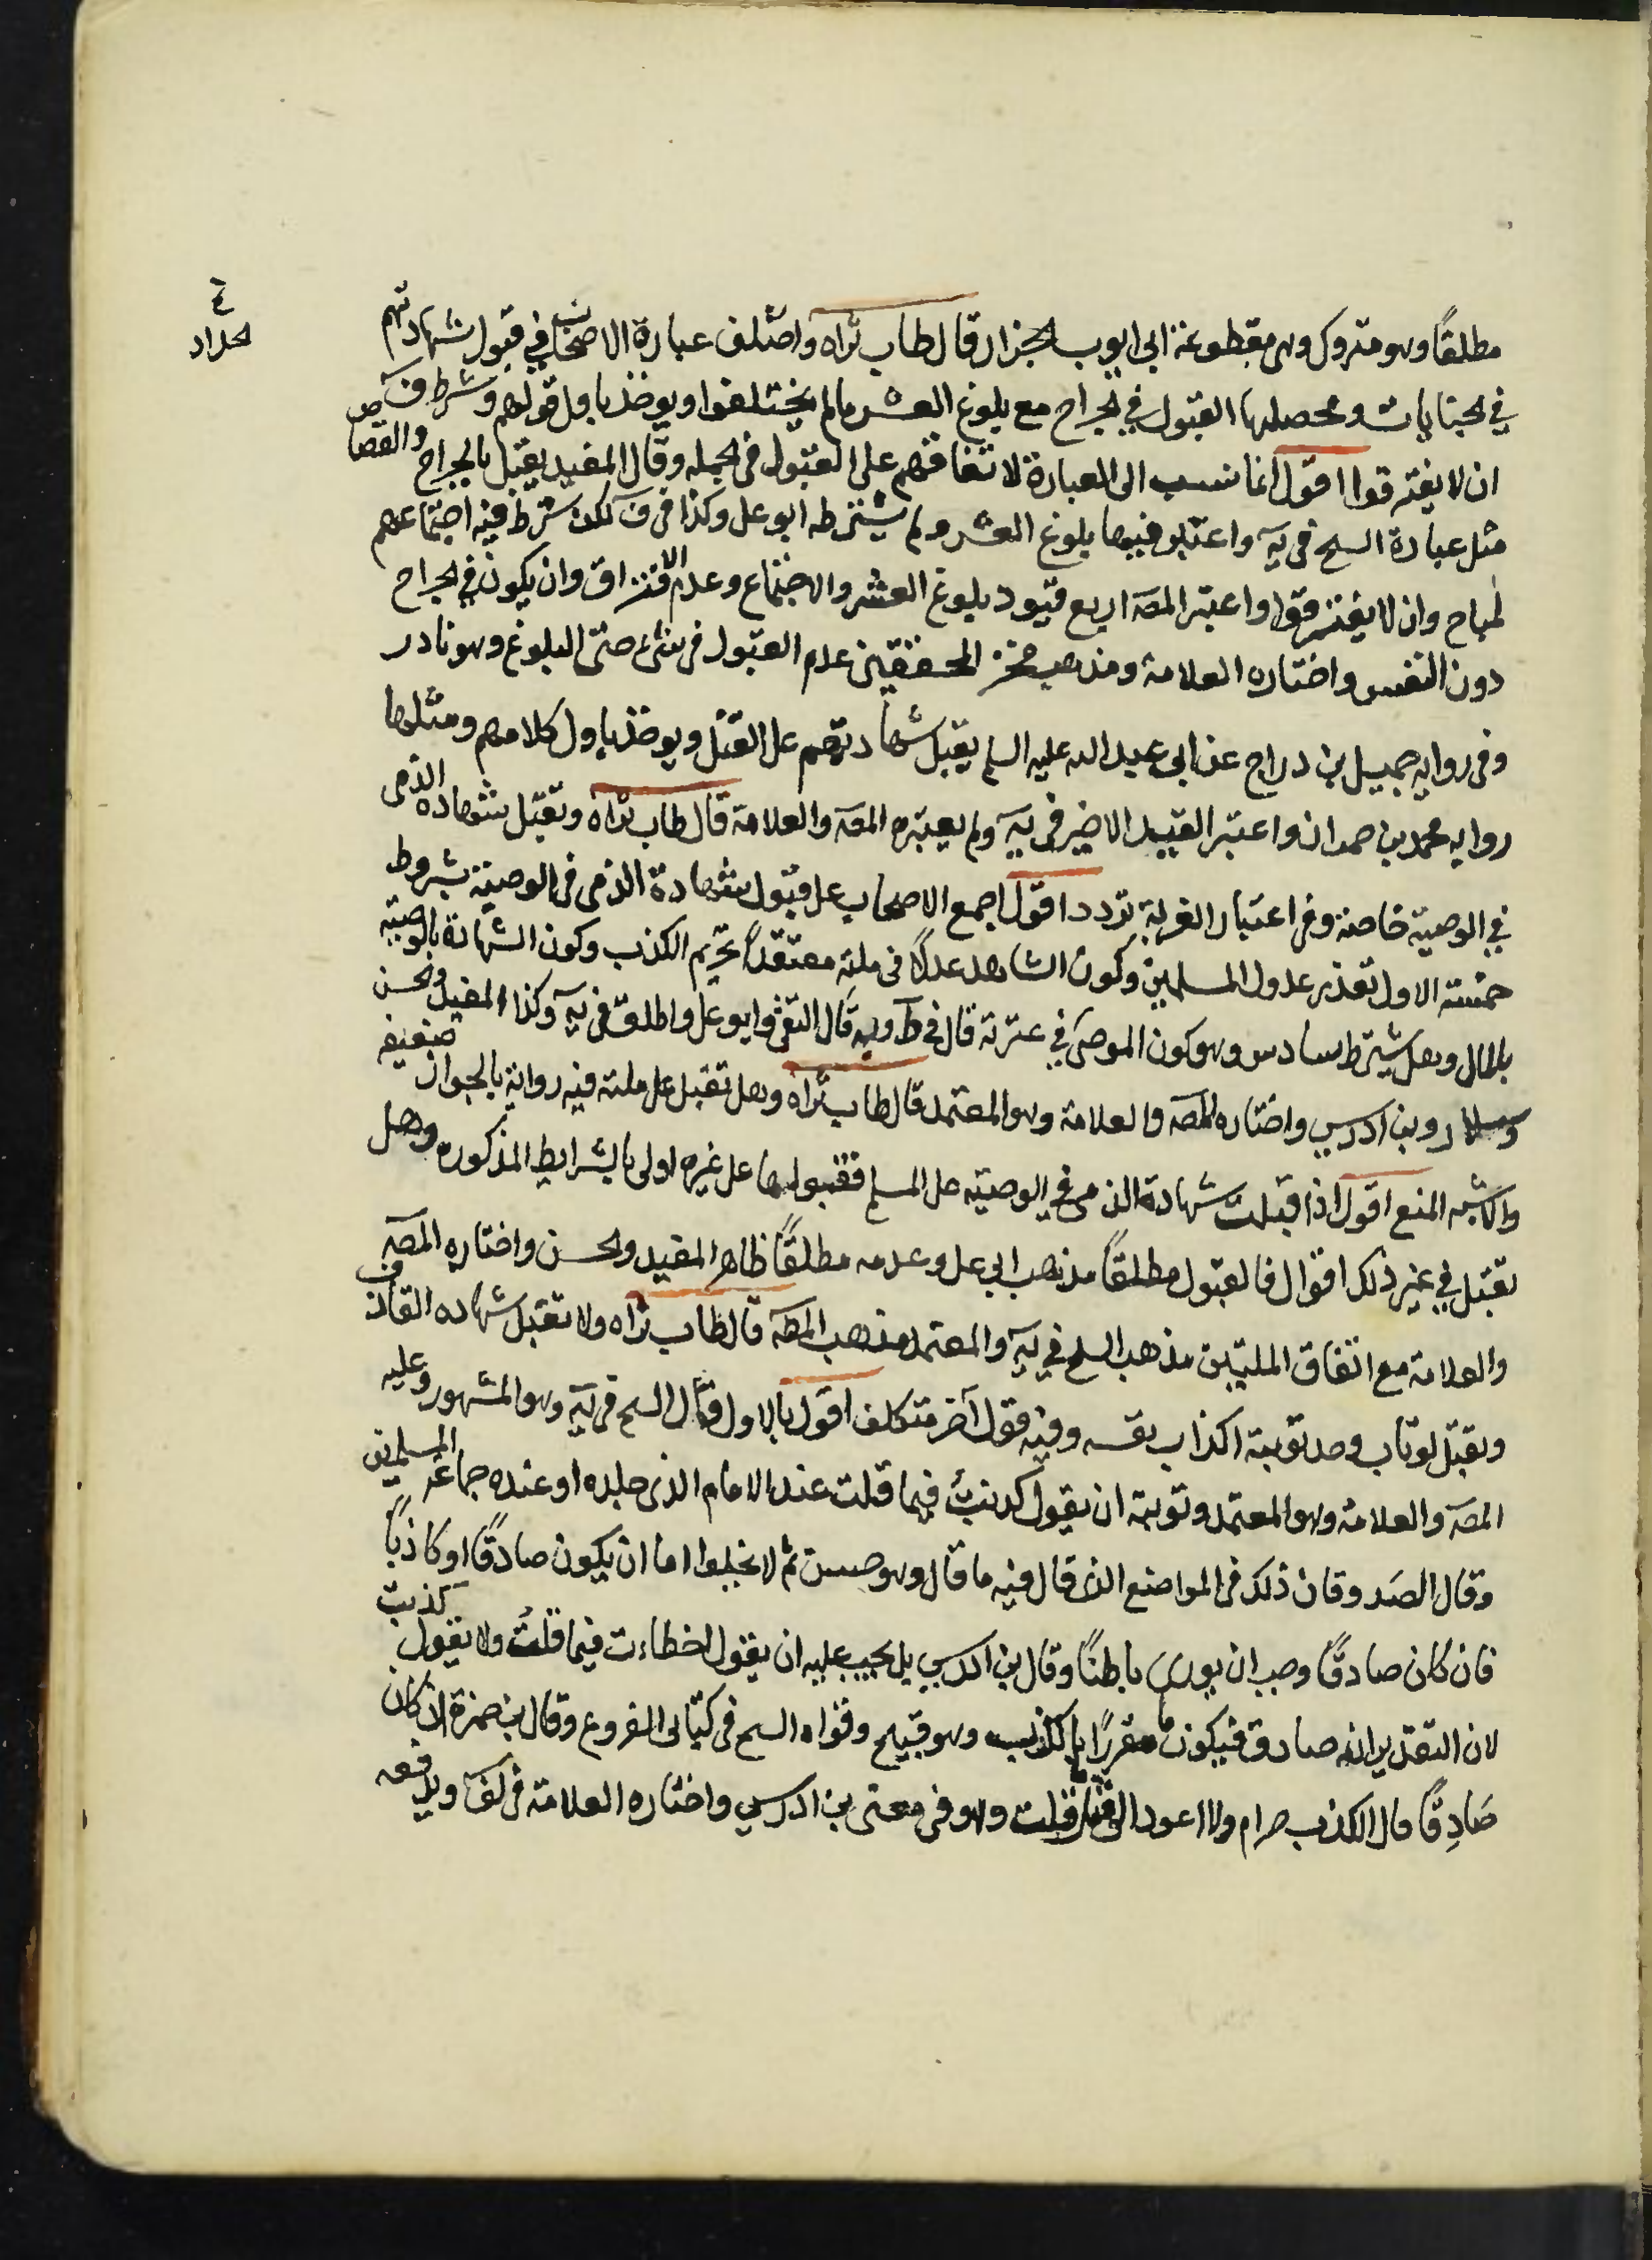 مطلقًا وهو متروك وهى مقطوعة ابى ايوب الخزار قال طاب ثراه واختلف عبارة الاصحاب في قبول شهادتهم
في الجنايات ومحصلها القبول في الجراح مع بلوغ العشر مالم يختلفوا ويوخذ باول قولهم وشرط ف
ان لا يفترقوا اقول انما نسب الى العبارة لاتفاقهم على القبول فى الجمله وقال المفيد يقبل بالجراح والقصاص
مثل عبارة السح فى يه واعتبر فيهما بلوغ العشر ولم يشترطه ابو على وكذا فى ف لكن شرط فيه اجتماعهم
لمباح وان لا يفترقوا واعتبر المصه اربع قيود بلوغ العشر والاجتماع وعدم الافتراق وان يكون في الجراح
دون النفس واختاره العلامة ومذهب فخر المحققين عدم القبول فى شئ حتى البلوغ وهو نادر
وفى روايه جميل بن دراج عن ابى عبد الله عليه السلم يقبل شهادتهم على القتل ويوخذ باول كلامهم ومثلها
روايه محمد بن حمدان واعتبر القييد الاخير فى يه ولم يعتبره المصه والعلامة قال طاب ثراه وتقبل شهاده الذمى
في الوصية خاصة وفى اعتبار الغربة تردد اقول اجمع الاصحاب على قبول شهادة الذمى فى الوصية بشروط
خمسة الاول تعذر عدول المسلمين وكون الشاهد عدلًا فى ملته معتقدًا تحريم الكذب وكون الشهادة بالوصية
بالمال وهل يشترط سادس وهو كون الموصى في غربة قال في ط وبه قال التقى وابو على واطلق فى يه وكذا المفيد والحسن
وسلار وبن ادريس واختاره المصه والعلامة وهو المعتمد قال طاب ثراه وهل تقبل على ملته فيه رواية بالجواز ضعيفه
والاشبه المنع اقول اذا قبلت شهادة الذمى في الوصية على المسلم فقبولها على غيره اولى بالشرايط المذكوره وهل
تقبل في غير ذلك اقوال فالقبول مطلقًا مذهب ابى على وعدمه مطلقًا ظاهر المفيد والحسن واختاره المصه
والعلامة مع اتفاق الملتين مذهب السح في يه والمعتمد مذهب المصه قال طاب ثراه ولا تقبل شهاده القاذف
وتقبل لو تاب وحد توبته اكذاب نفسه وفيه قول آخر متكلف اقول بالاول قال السح فى يه وهو المشهور وعليه
المصه والعلامة وهو المعتمد وتوبته ان يقول كذبت فيما قلت عند الامام الذى جلده او عنده جماعة المسلمين
وقال الصدوقان ذلك فى المواضع الذى قال فيه ما قال وهو حسن ثم لا يخلوا اما ان يكون صادقًا او كاذبًا
فان كان صادقًا وجب ان يورى باطنًا وقال بن ادريس بل يجب عليه ان يقول اخطاءت فيما قلت ولا يقول كذبت
لان التقدير انه صادق فيكون مقررًا بالكذب وهو قبيح وقواه السح فى كتابى الفروع وقال بن حمزة ان كان
صَادِقًا قال الكذب حرام ولا اعود الى مثل ما قلت وهو فى معنى بن ادريس واختاره العلامة فى لف
الحداد